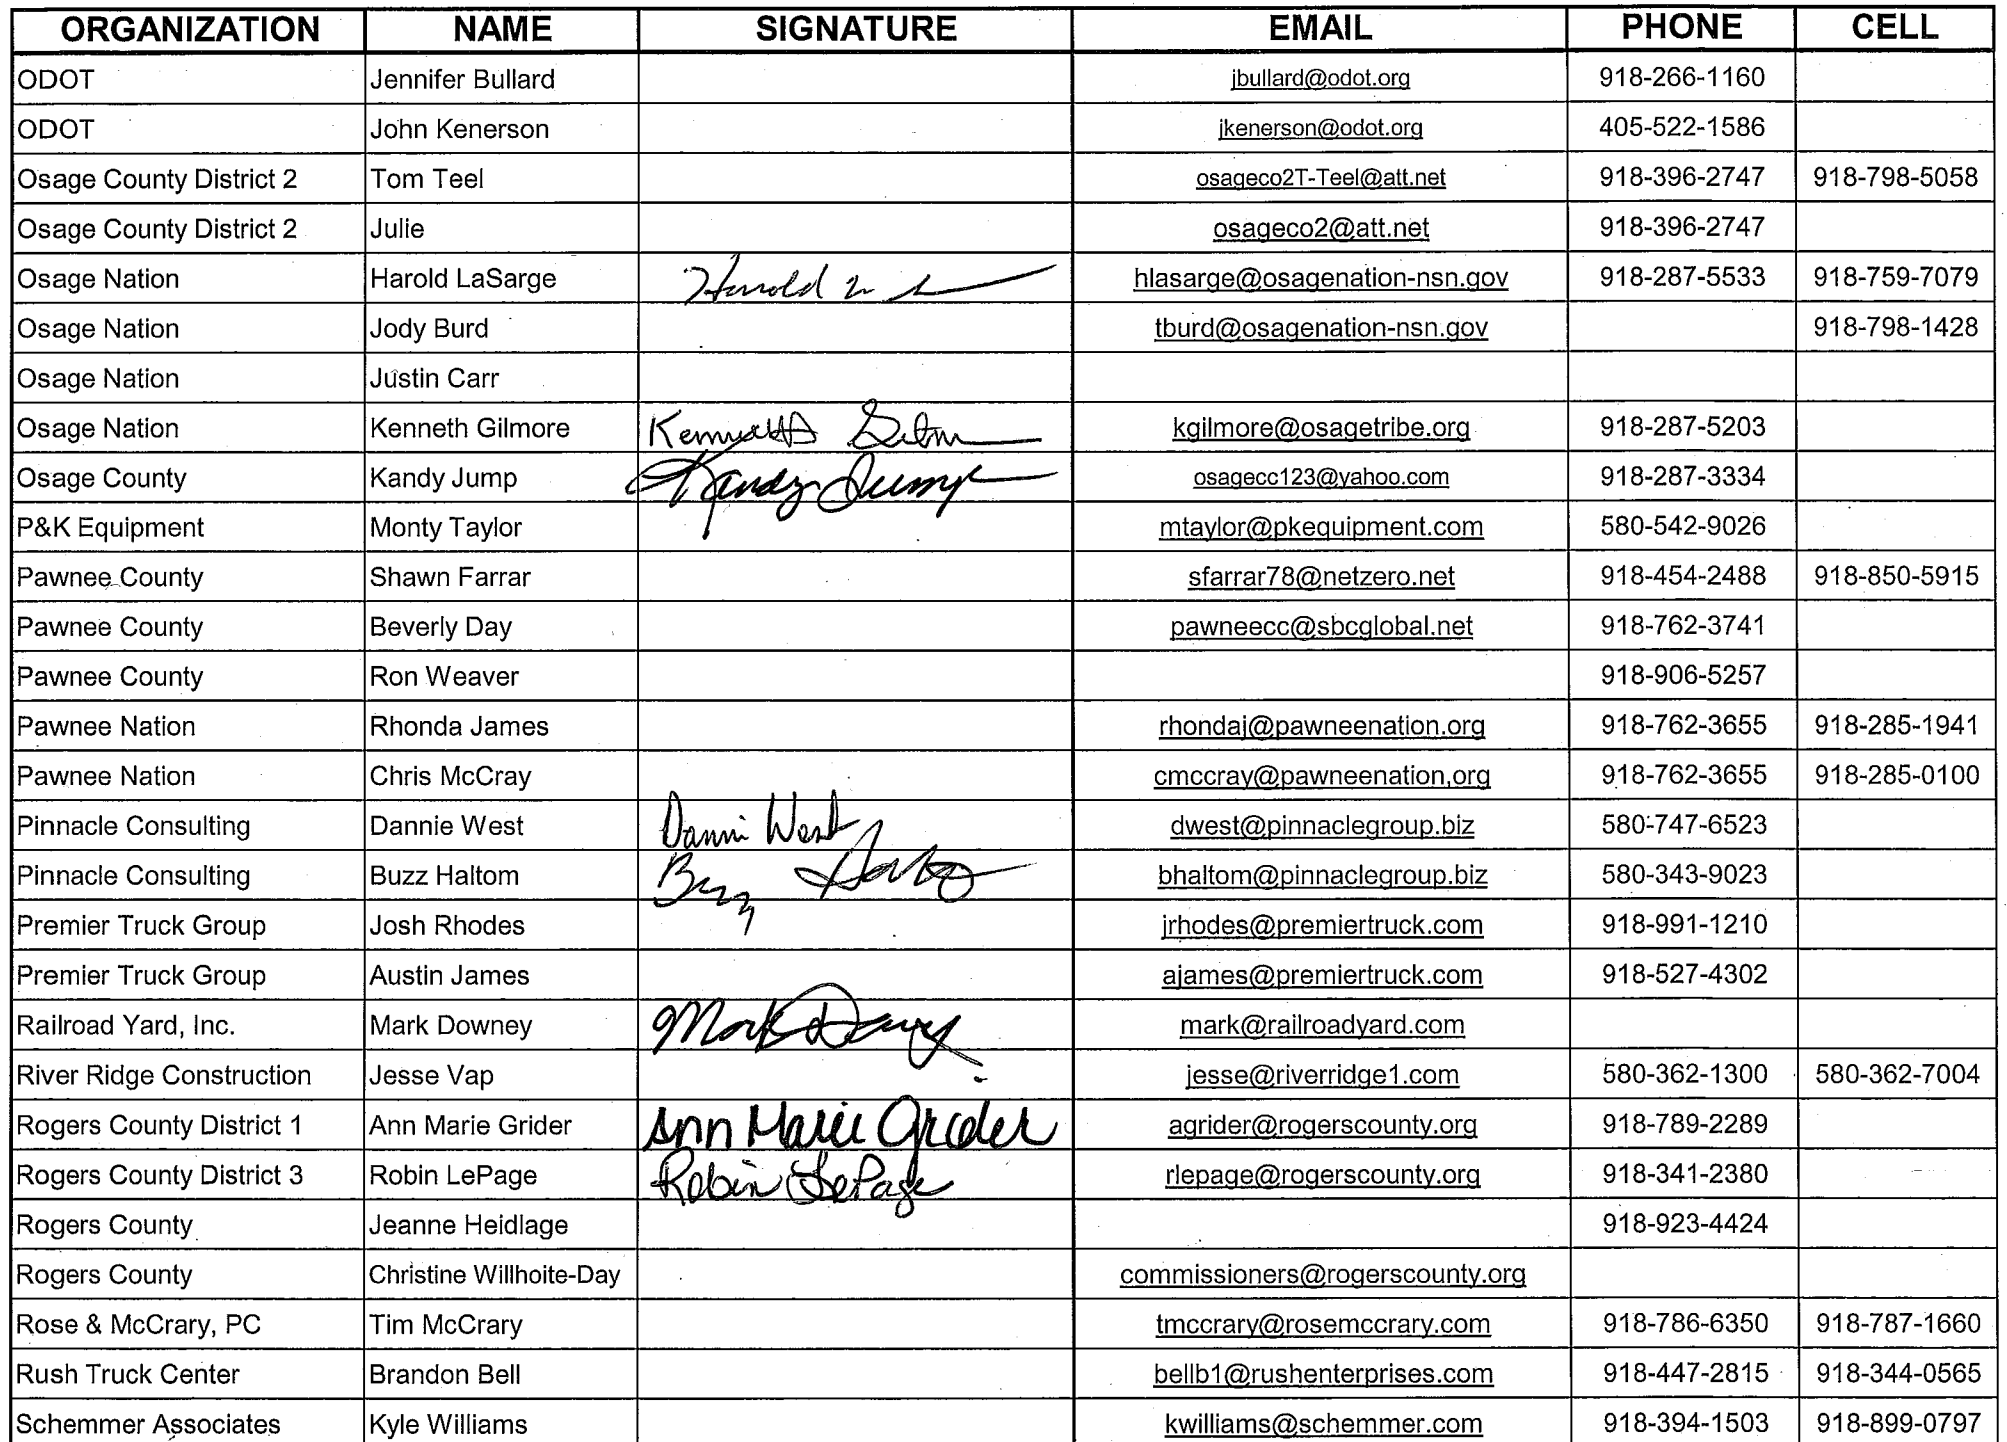 ORGANIZATION NAME SIGNATURE EMAIL PHONE CELL
ODOT Jennifer Bullard jbullard@odot.org 918-266-1160
ODOT John Kenerson jkenerson@odot.org 405-522-1586
Osage County District 2 Tom Teel osageco2T-Teel@att.net 918-396-2747 918-798-5058
Osage County District 2 Julie osageco2@att.net 918-396-2747
Osage Nation Harold LaSarge Harold hlasarge@osagenation-nsn.gov 918-287-5533 918-759-7079
Osage Nation Jody Burd tburd@osagenation-nsn.gov 918-798-1428
Osage Nation Justin Carr
Osage Nation Kenneth Gilmore Kenneth kgilmore@osagetribe.org 918-287-5203
Osage County Kandy Jump Kandy Jump osagecc123@yahoo.com 918-287-3334
P&K Equipment Monty Taylor mtaylor@pkequipment.com 580-542-9026
Pawnee County Shawn Farrar sfarrar78@netzero.net 918-454-2488 918-850-5915
Pawnee County Beverly Day pawneecc@sbcglobal.net 918-762-3741
Pawnee County Ron Weaver 918-906-5257
Pawnee Nation Rhonda James rhondaj@pawneenation.org 918-762-3655 918-285-1941
Pawnee Nation Chris McCray cmccray@pawneenation,org 918-762-3655 918-285-0100
Pinnacle Consulting Dannie West Danni West dwest@pinnaclegroup.biz 580-747-6523
Pinnacle Consulting Buzz Haltom Buzz bhaltom@pinnaclegroup.biz 580-343-9023
Premier Truck Group Josh Rhodes jrhodes@premiertruck.com 918-991-1210
Premier Truck Group Austin James ajames@premiertruck.com 918-527-4302
Railroad Yard, Inc. Mark Downey Mark Downey mark@railroadyard.com
River Ridge Construction Jesse Vap jesse@riverridge1.com 580-362-1300 580-362-7004
Rogers County District 1 Ann Marie Grider Ann Marie Grider agrider@rogerscounty.org 918-789-2289
Rogers County District 3 Robin LePage Robin LePage rlepage@rogerscounty.org 918-341-2380
Rogers County Jeanne Heidlage 918-923-4424
Rogers County Christine Willhoite-Day commissioners@rogerscounty.org
Rose & McCrary, PC Tim McCrary tmccrary@rosemccrary.com 918-786-6350 918-787-1660
Rush Truck Center Brandon Bell bellb1@rushenterprises.com 918-447-2815 918-344-0565
Schemmer Associates Kyle Williams kwilliams@schemmer.com 918-394-1503 918-899-0797